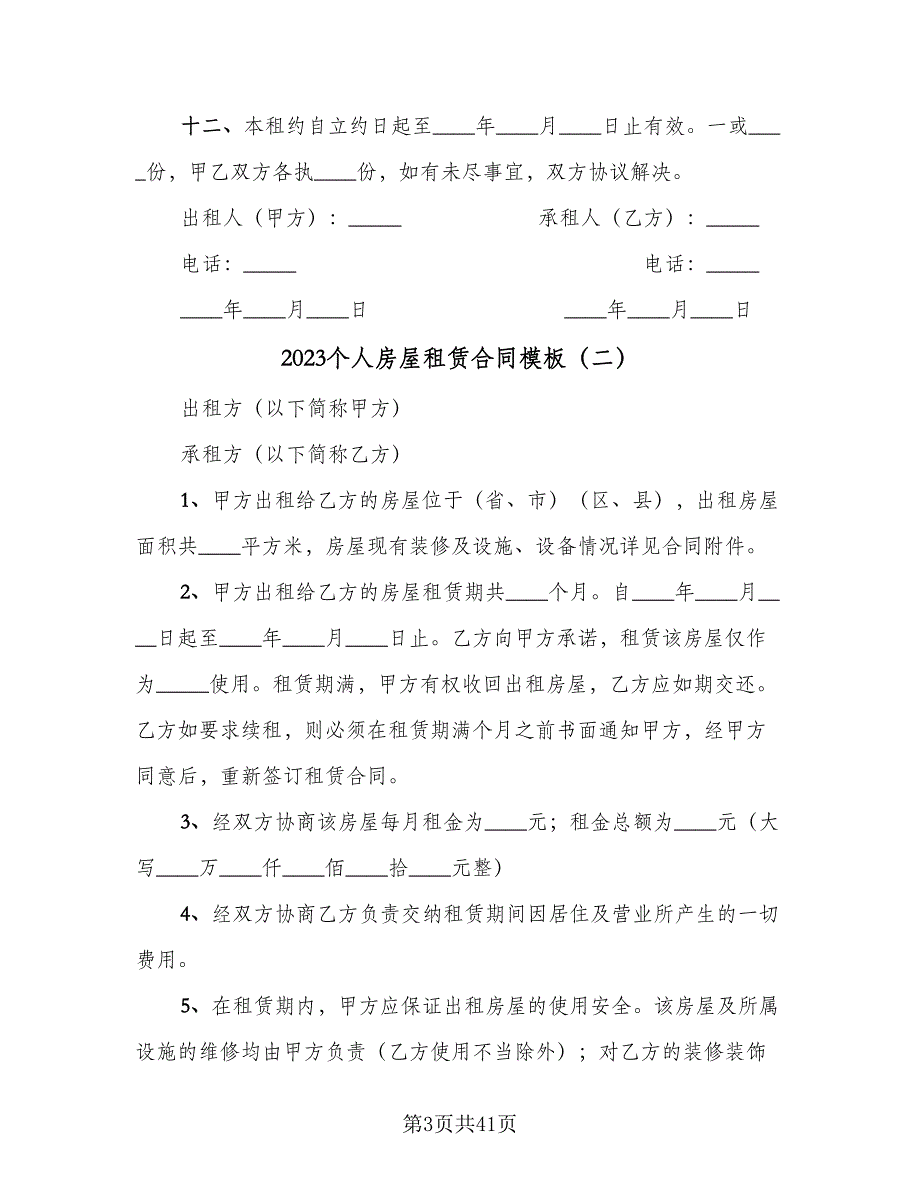 十二、本租约自立约日起至____年____月____日止有效。一或___
_份，甲乙双方各执____份，如有未尽事宜，双方协议解决。
出租人（甲方）：_____ 承租人（乙方）：_____
电话：_____ 电话：_____
____年____月____日 ____年____月____日
2023个人房屋租赁合同模板（二）
出租方（以下简称甲方）
承租方（以下简称乙方）
1、甲方出租给乙方的房屋位于（省、市）（区、县），出租房屋
面积共____平方米，房屋现有装修及设施、设备情况详见合同附件。
2、甲方出租给乙方的房屋租赁期共____个月。自____年____月__
__日起至____年____月____日止。乙方向甲方承诺，租赁该房屋仅作
为_____使用。租赁期满，甲方有权收回出租房屋，乙方应如期交还。
乙方如要求续租，则必须在租赁期满个月之前书面通知甲方，经甲方
同意后，重新签订租赁合同。
3、经双方协商该房屋每月租金为____元；租金总额为____元（大
写____万____仟____佰____拾____元整）
4、经双方协商乙方负责交纳租赁期间因居住及营业所产生的一切
费用。
5、在租赁期内，甲方应保证出租房屋的使用安全。该房屋及所属
设施的维修均由甲方负责（乙方使用不当除外）；对乙方的装修装饰
第3页共41页